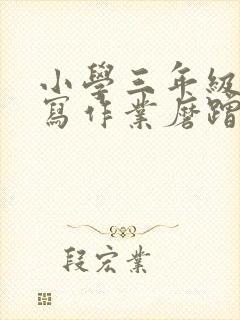 小學三年級
寫作業磨蹭
段宏業